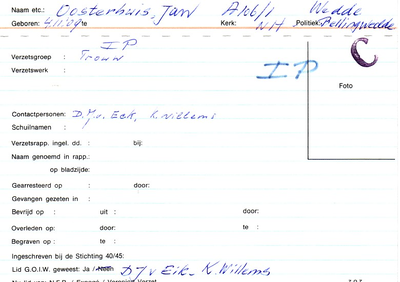 Naam etc.: Oosterhuis, Jan Akb/1 Wedde
Geboren: 4/11/09 Kerk: NH Politiek: Pellingwedde
IP
Verzetsgroep : Trouw
Verzetswerk : IP
C
Foto
Contactpersonen: D.J.v. Eck, K. Willems
Schuilnamen :
Verzetsrapp. ingel. dd. : bij:
Naam genoemd in rapp.:
op bladzijde:
Gearresteerd op : door:
Gevangen gezeten in :
Bevrijd op : uit : door:
Overleden op: door: te :
Begraven op : te :
Ingeschreven bij de Stichting 40/45:
Lid G.O.I.W. geweest: Ja / Neen D J v Eik - K. Willems